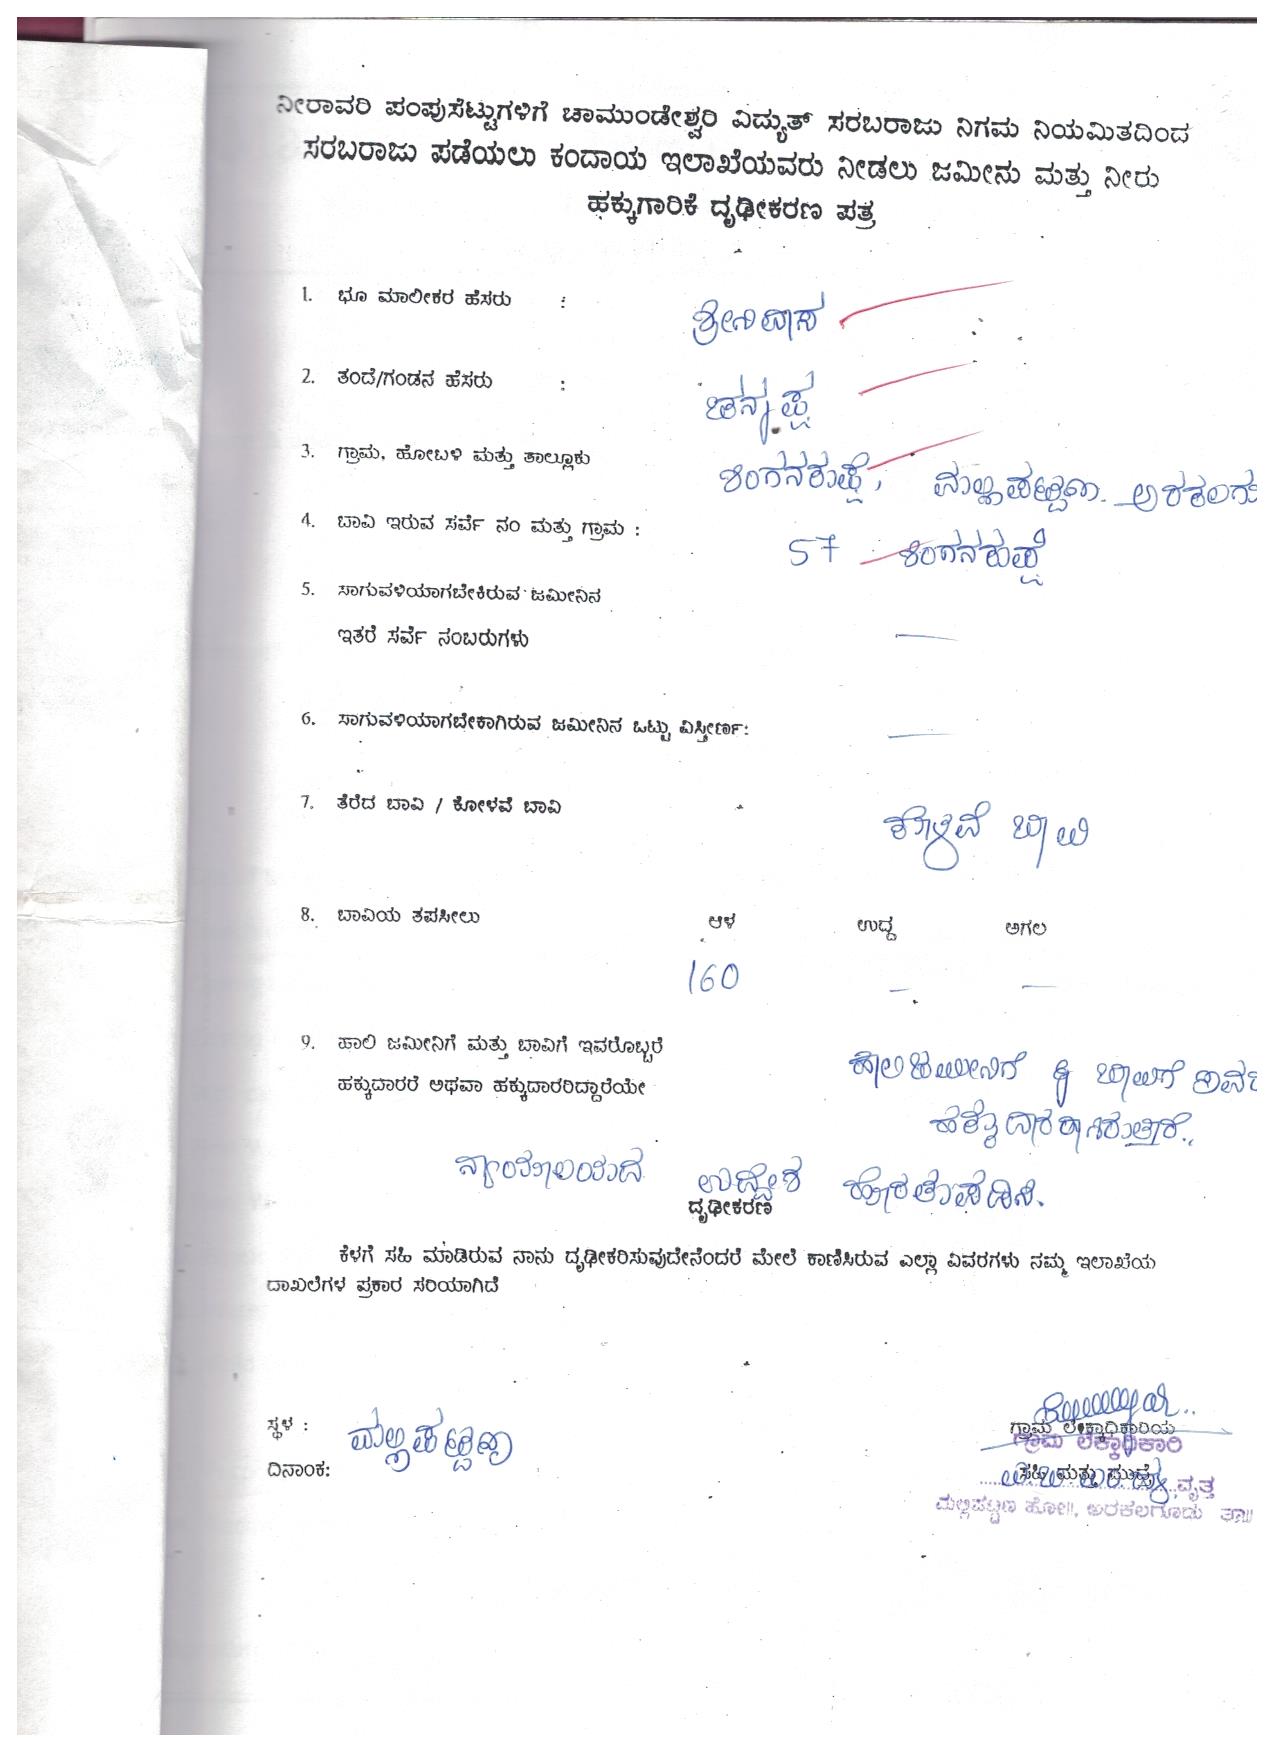 ನೀರಾವರಿ ಪಂಪುಸೆಟ್ಟುಗಳಿಗೆ ಚಾಮುಂಡೇಶ್ವರಿ ವಿದ್ಯುತ್ ಸರಬರಾಜು ನಿಗಮ ನಿಯಮಿತದಿಂದ
ಸರಬರಾಜು ಪಡೆಯಲು ಕಂದಾಯ ಇಲಾಖೆಯವರು ನೀಡಲು ಜಮೀನು ಮತ್ತು ನೀರು
ಹಕ್ಕುಗಾರಿಕೆ ದೃಢೀಕರಣ ಪತ್ರ
1. ಭೂ ಮಾಲೀಕರ ಹೆಸರು : ಶ್ರೀನಿವಾಸ
2. ತಂದೆ/ಗಂಡನ ಹೆಸರು : ಚನ್ನಪ್ಪ
3. ಗ್ರಾಮ, ಹೋಬಳಿ ಮತ್ತು ತಾಲ್ಲೂಕು ಶಿಂಗನಕುಪ್ಪೆ, ಮಲ್ಲಿಪಟ್ಟಣ.
4. ಬಾವಿ ಇರುವ ಸರ್ವೆ ನಂ ಮತ್ತು ಗ್ರಾಮ : 57 ಶಿಂಗನಕುಪ್ಪೆ
5. ಸಾಗುವಳಿಯಾಗಬೇಕಿರುವ ಜಮೀನಿನ
ಇತರೆ ಸರ್ವೆ ನಂಬರುಗಳು —
6. ಸಾಗುವಳಿಯಾಗಬೇಕಾಗಿರುವ ಜಮೀನಿನ ಒಟ್ಟು ವಿಸ್ತೀರ್ಣ: —
7. ತೆರೆದ ಬಾವಿ / ಕೋಳವೆ ಬಾವಿ ಕೊಳವೆ ಬಾವಿ
8. ಬಾವಿಯ ತಪಸೀಲು ಆಳ ಉದ್ದ ಅಗಲ
160 — —
9. ಹಾಲಿ ಜಮೀನಿಗೆ ಮತ್ತು ಬಾವಿಗೆ ಇವರೊಬ್ಬರೆ ಹಾಲಿ ಜಮೀನಿಗೆ & ಬಾವಿಗೆ
ಹಕ್ಕುದಾರರೆ ಅಥವಾ ಹಕ್ಕುದಾರರಿದ್ದಾರೆಯೇ ಹಕ್ಕುದಾರರಾಗಿರುತ್ತಾರೆ.
ನ್ಯಾಯಾಲಯದ ಉದ್ದೇಶ ಹೊರತುಪಡಿಸಿ.
ದೃಢೀಕರಣ
ಕೆಳಗೆ ಸಹಿ ಮಾಡಿರುವ ನಾನು ದೃಢೀಕರಿಸುವುದೇನೆಂದರೆ ಮೇಲೆ ಕಾಣಿಸಿರುವ ಎಲ್ಲಾ ವಿವರಗಳು ನಮ್ಮ ಇಲಾಖೆಯ
ದಾಖಲೆಗಳ ಪ್ರಕಾರ ಸರಿಯಾಗಿದೆ
ಸ್ಥಳ : ಮಲ್ಲಿಪಟ್ಟಣ
ಗ್ರಾಮ ಲೆಕ್ಕಾಧಿಕಾರಿಯ
ಗ್ರಾಮ ಲೆಕ್ಕಾಧಿಕಾರಿ
ದಿನಾಂಕ: ಸಹಿ ಮತ್ತು ಮುದ್ರೆ
ವೃತ್ತ
ಮಲ್ಲಿಪಟ್ಟಣ ಹೋ||, ಅರಕಲಗೂಡು ತಾ||